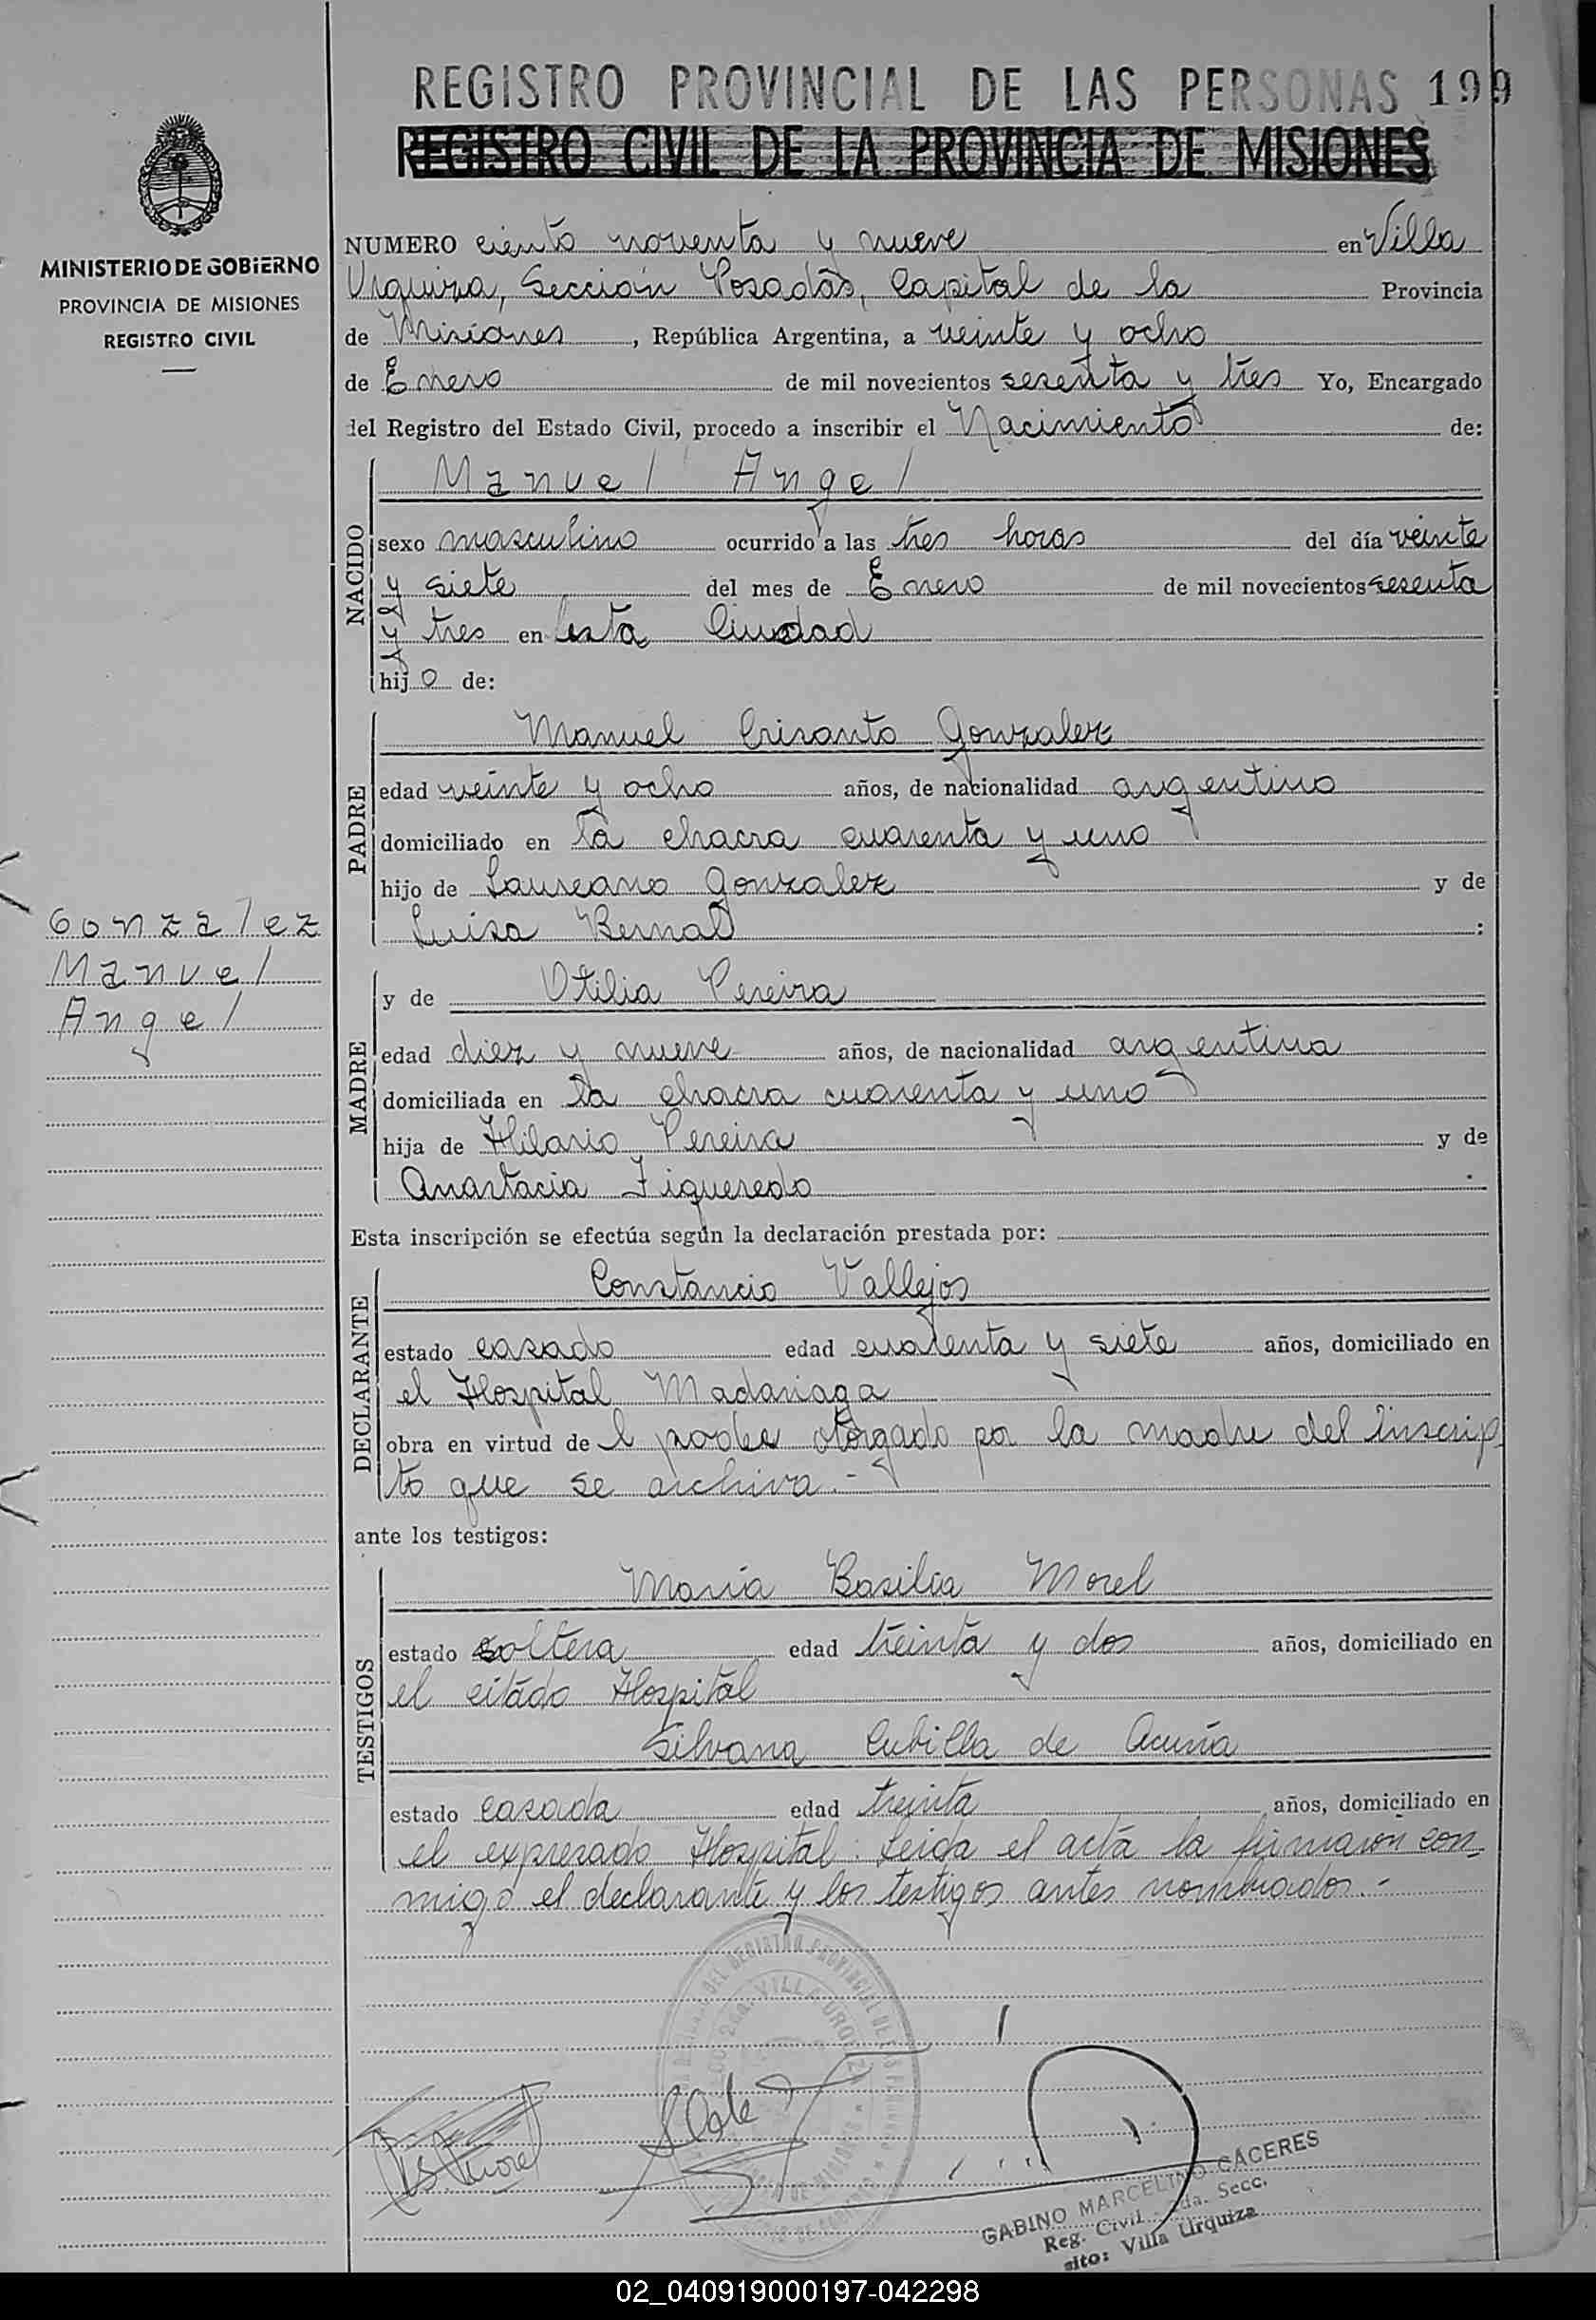 REGISTRO PROVINCIAL DE LAS PERSONAS 199
REGISTRO CIVIL DE LA PROVINCIA DE MISIONES
MINISTERIO DE GOBIERNO
PROVINCIA DE MISIONES
REGISTRO CIVIL
NUMERO ciento noventa y nueve en Villa
Urquiza, Sección Posadas, Capital de la Provincia
de Misiones, República Argentina, a veinte y ocho
de Enero de mil novecientos sesenta y tres Yo, Encargado
del Registro del Estado Civil, procedo a inscribir el Nacimiento de:
NACIDO
Manuel Angel
sexo masculino ocurrido a las tres horas del día veinte
y siete del mes de Enero de mil novecientos sesenta
y tres en esta Ciudad
hijo de:
PADRE
Manuel Crisanto Gonzalez
edad veinte y ocho años, de nacionalidad argentino
domiciliado en la chacra cuarenta y uno
hijo de Laureano Gonzalez y de
Luisa Bernal :
Gonzalez
Manuel
Angel
MADRE
y de Otilia Pereira
edad diez y nueve años, de nacionalidad argentina
domiciliada en la chacra cuarenta y uno
hija de Hilario Pereira y de
Anastacia Figueredo .
Esta inscripción se efectúa según la declaración prestada por:
DECLARANTE
Constancio Vallejos
estado casado edad cuarenta y siete años, domiciliado en
el Hospital Madariaga
obra en virtud del poder otorgado por la madre del inscrip
to que se archiva.-
ante los testigos:
TESTIGOS
María Basilia Morel
estado soltera edad treinta y dos años, domiciliado en
el citado Hospital
Silvana Cubilla de Acuña
estado casada edad treinta años, domiciliado en
el expresado Hospital. Leida el acta la firmaron con-
migo el declarante y los testigos antes nombrados.-
GABINO MARCELINO CACERES
Reg. Civil 2da. Secc.
sito: Villa Urquiza
02_040919000197-042298